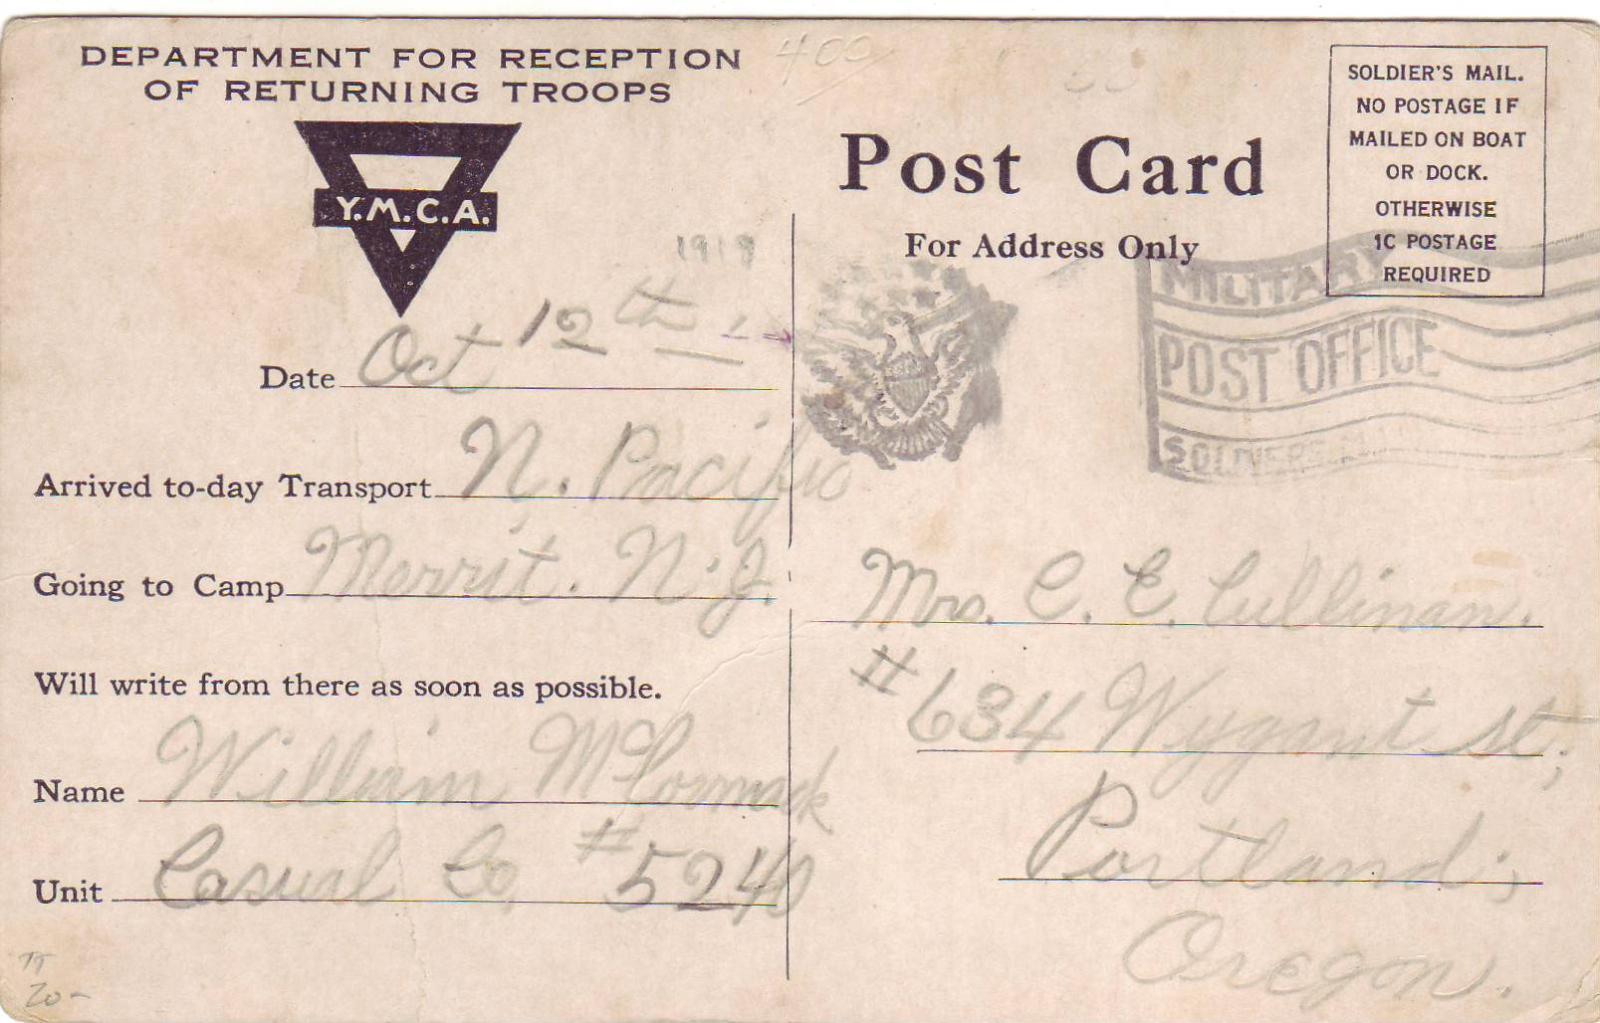 DEPARTMENT FOR RECEPTION
OF RETURNING TROOPS
400
Y.M.C.A.
1919
Date Oct 12th
Arrived to-day Transport N. Pacific
Going to Camp Merrit. N.J.
Will write from there as soon as possible.
Name William McCormack
Unit Casual Co #5240
20-
Post Card
For Address Only
SOLDIER'S MAIL.
NO POSTAGE IF
MAILED ON BOAT
OR DOCK.
OTHERWISE
1C POSTAGE
REQUIRED
MILITARY
POST OFFICE
SOLDIERS
Mrs. C. E. Cullinan.
#634 Wygant St;
Portland;
Oregon.